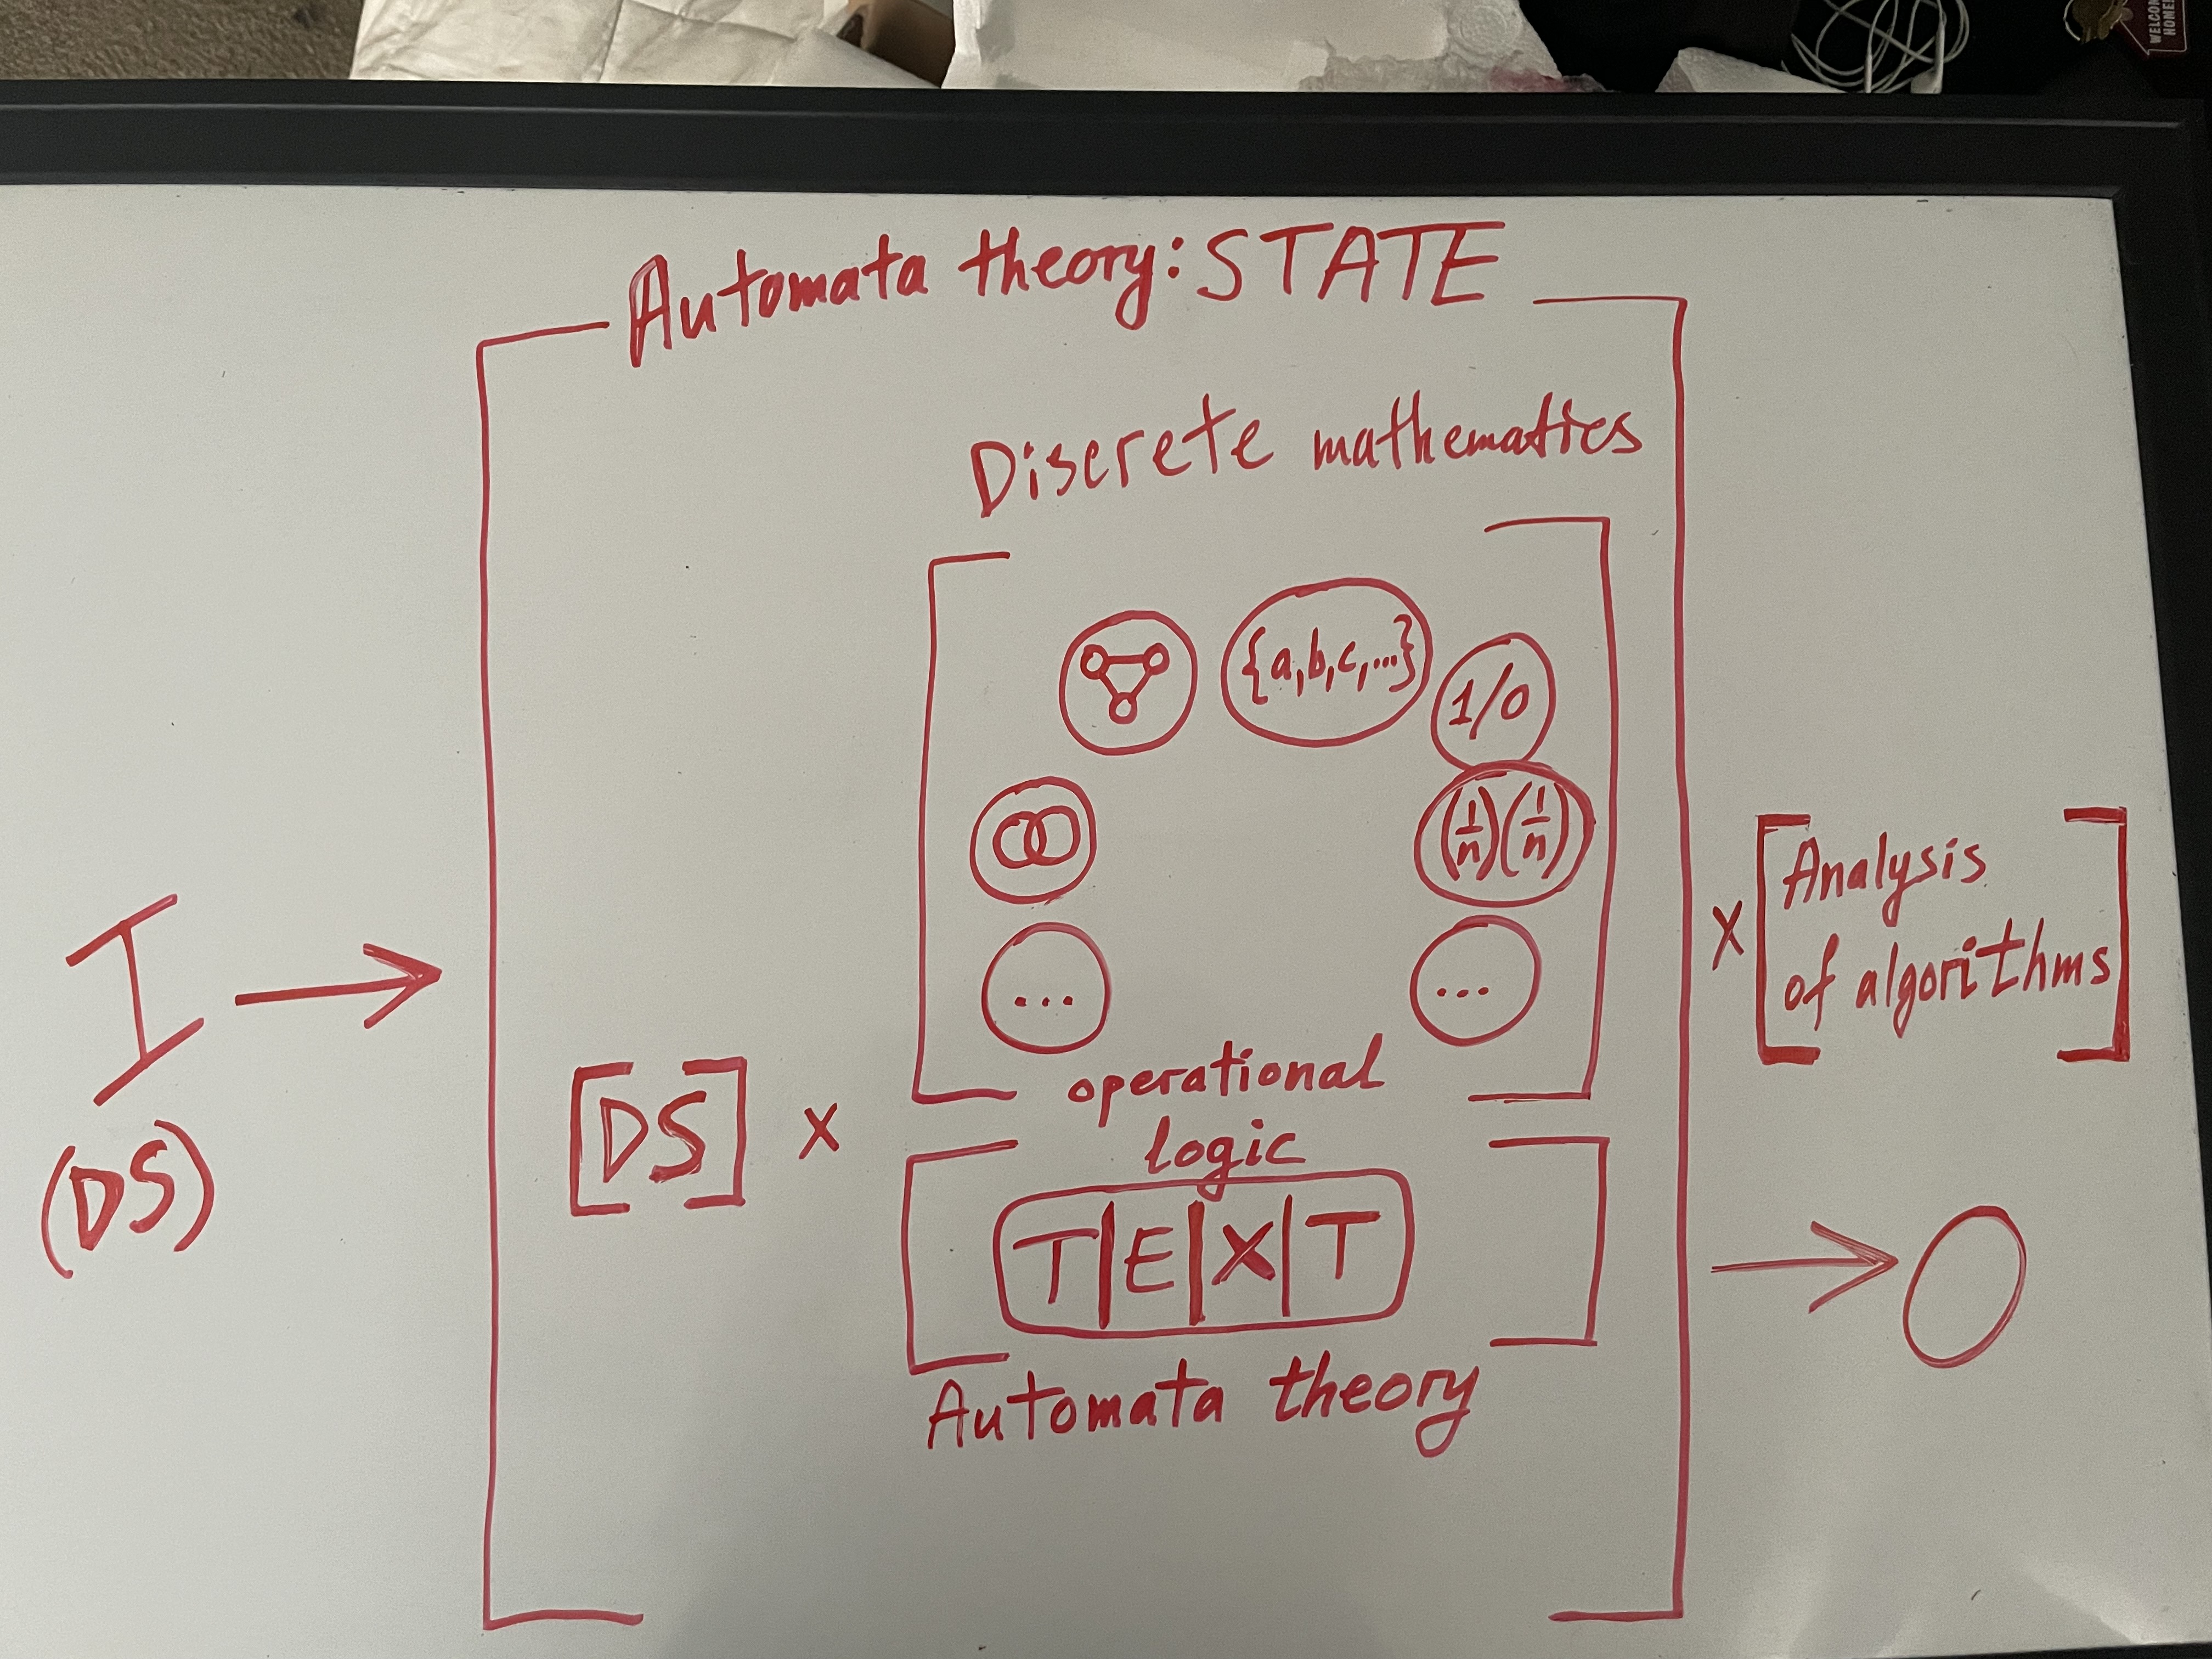 Automata theory: STATE
Discrete mathematics
{a,b,c,...}
1/0
(1/n)(1/n)
...
...
I
(DS)
[DS] x
operational
logic
T|E|X|T
Automata theory
x [Analysis
of algorithms]
O
WELCOME
HOME